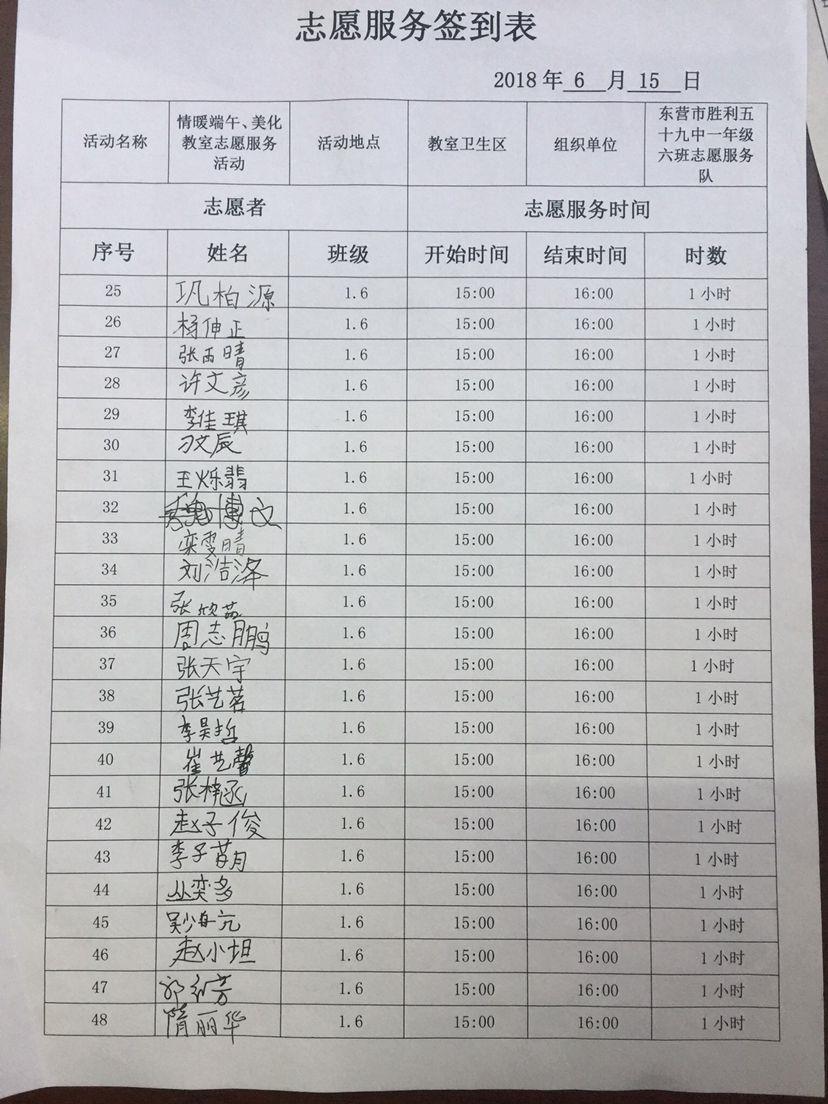 志愿服务签到表
2018 年 6 月 15 日
活动名称 情暖端午、美化教室志愿服务活动 活动地点 教室卫生区 组织单位 东营市胜利五十九中一年级六班志愿服务队
志愿者 志愿服务时间
序号 姓名 班级 开始时间 结束时间 时数
25 巩柏源 1.6 15:00 16:00 1 小时
26 杨伸正 1.6 15:00 16:00 1 小时
27 张芮晴 1.6 15:00 16:00 1 小时
28 许文彦 1.6 15:00 16:00 1 小时
29 李佳琪 1.6 15:00 16:00 1 小时
30 刁文辰 1.6 15:00 16:00 1 小时
31 王烁翡 1.6 15:00 16:00 1 小时
32 魏博文 1.6 15:00 16:00 1 小时
33 栾雯晴 1.6 15:00 16:00 1 小时
34 刘浩泽 1.6 15:00 16:00 1 小时
35 1.6 15:00 16:00 1 小时
36 周志鹏 1.6 15:00 16:00 1 小时
37 张天宇 1.6 15:00 16:00 1 小时
38 张艺茗 1.6 15:00 16:00 1 小时
39 李昊哲 1.6 15:00 16:00 1 小时
40 崔艺馨 1.6 15:00 16:00 1 小时
41 张梓函 1.6 15:00 16:00 1 小时
42 赵子俊 1.6 15:00 16:00 1 小时
43 李子萌 1.6 15:00 16:00 1 小时
44 丛奕多 1.6 15:00 16:00 1 小时
45 1.6 15:00 16:00 1 小时
46 赵小坦 1.6 15:00 16:00 1 小时
47 1.6 15:00 16:00 1 小时
48 隋丽华 1.6 15:00 16:00 1 小时